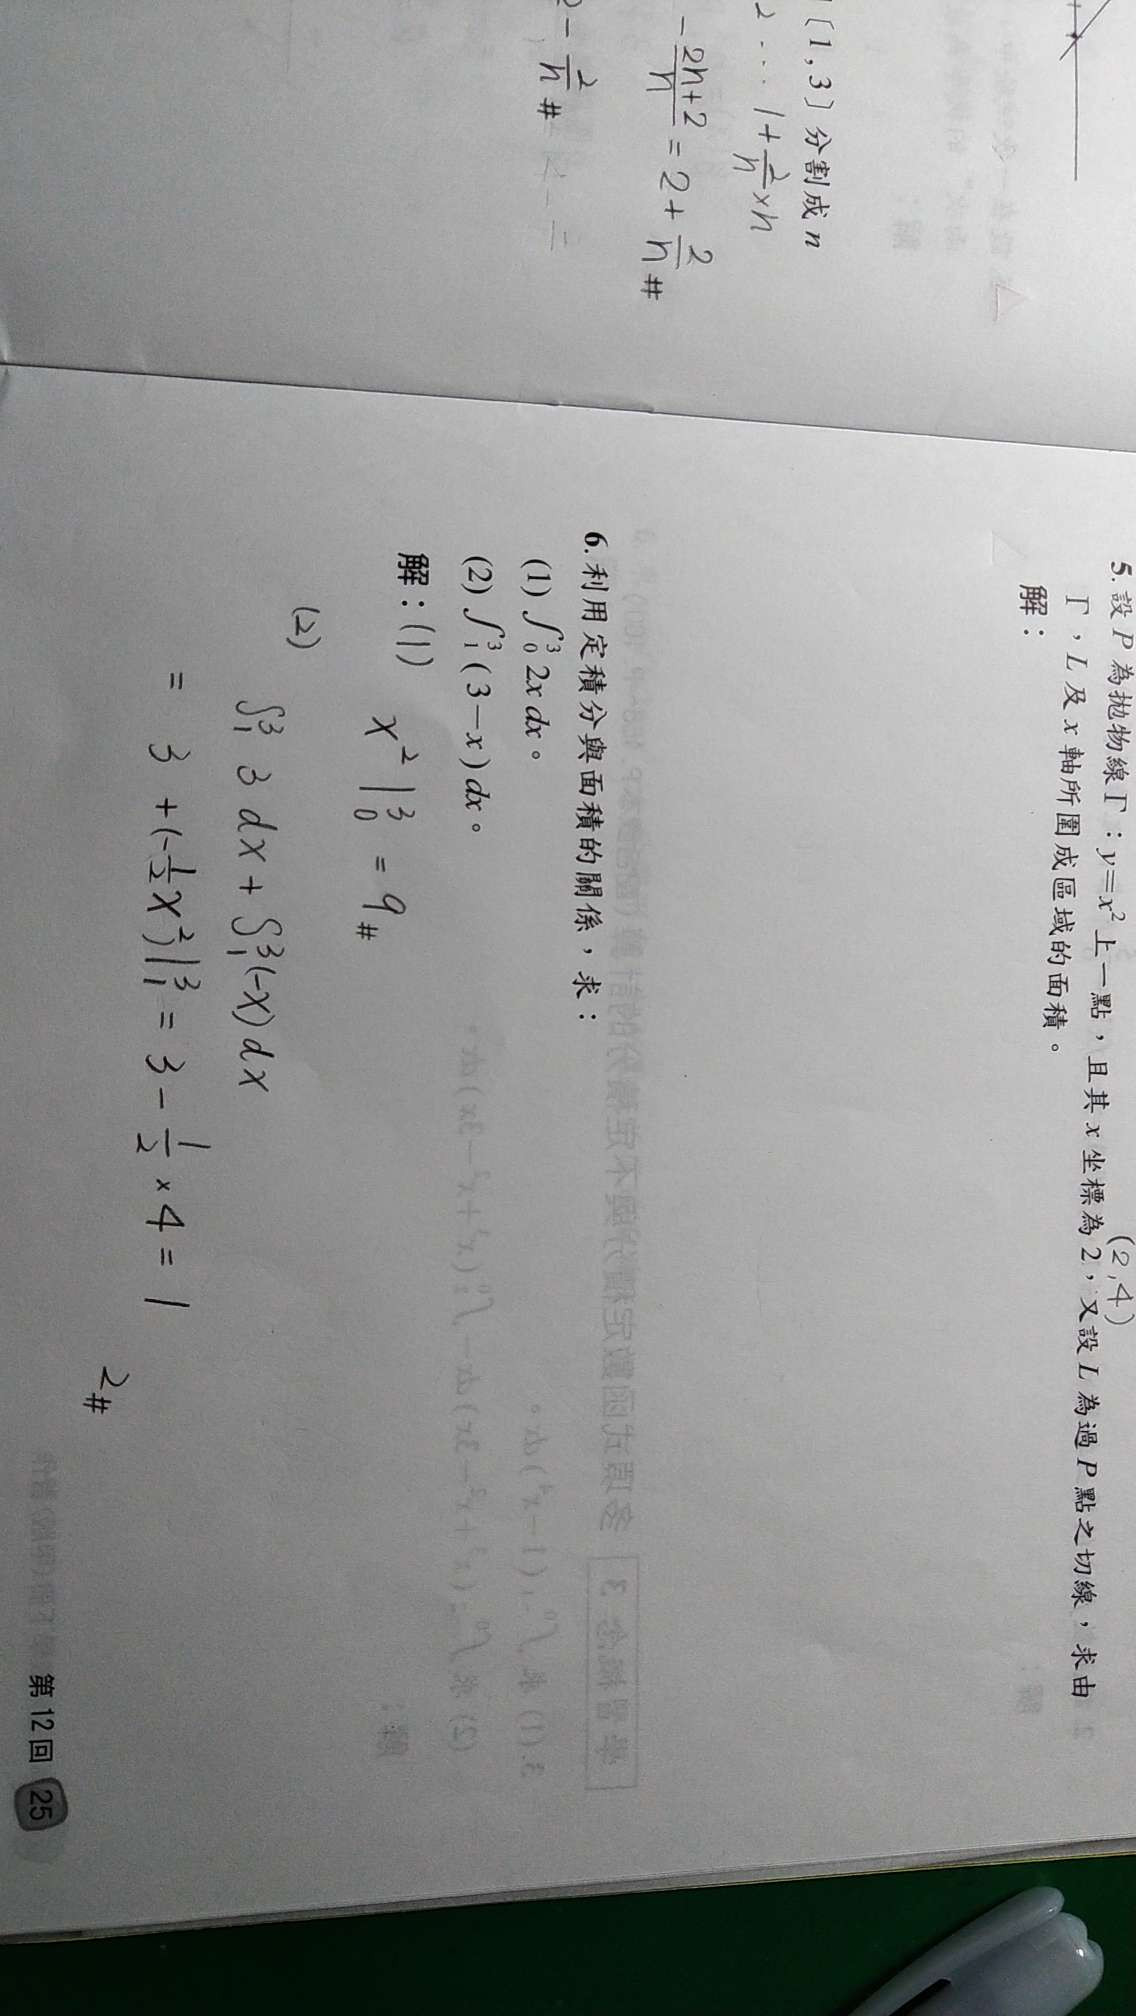 〔1,3〕分割成 n
2 … 1+\frac{2}{n}×n
-\frac{2n+2}{n} = 2+\frac{2}{n} #
-\frac{2}{n} #
5. 設 P 為拋物線 Γ：y=x² 上一點，且其 x 坐標為 2，又設 L 為過 P 點之切線，求由
(2,4)
Γ，L 及 x 軸所圍成區域的面積。
解：
6. 利用定積分與面積的關係，求：
(1) ∫₀³ 2x dx。
(2) ∫₁³ (3−x) dx。
解：(1)
x² |₀³ = 9 #
(2)
∫₁³ 3 dx + ∫₁³ (-x) dx
= 3 + (-\frac{1}{2}x²)|₁³ = 3 - \frac{1}{2} × 4 = 1
2 #
第 12 回 25